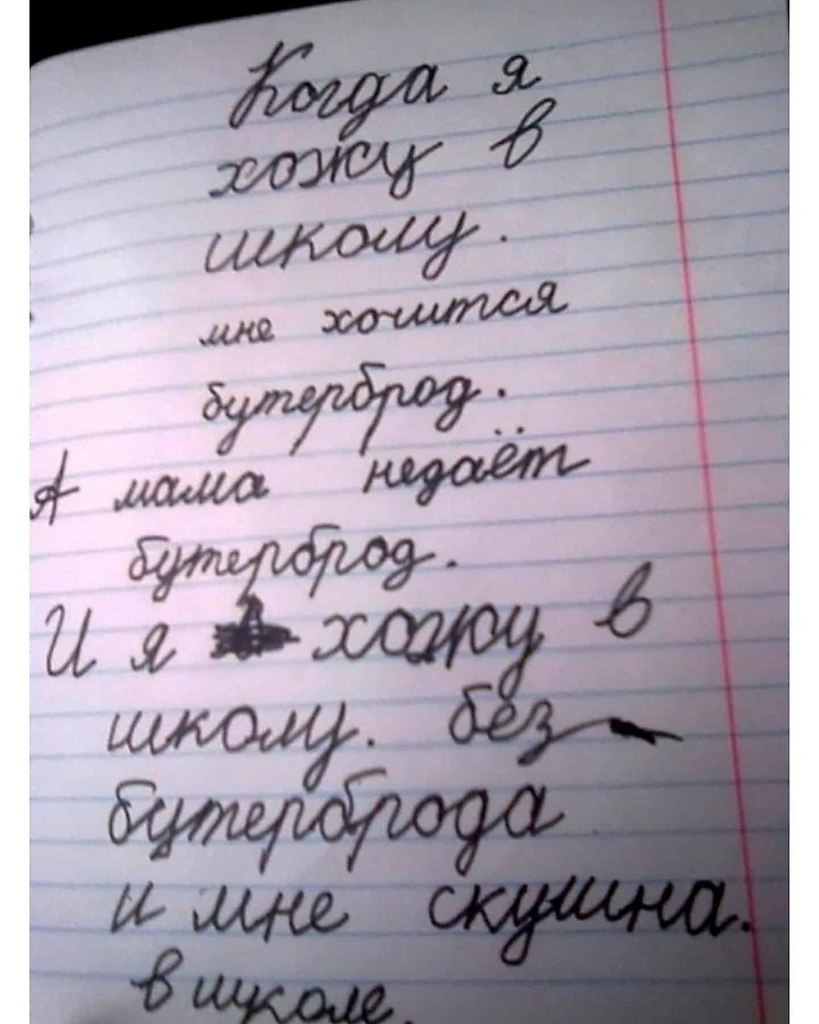 Когда я
хожу в
школу.
мне хочится
бутерброд.
А мама недаёт
бутерброд.
И я хожу в
школу. без
бутерброда
и мне скушна.
в школе.